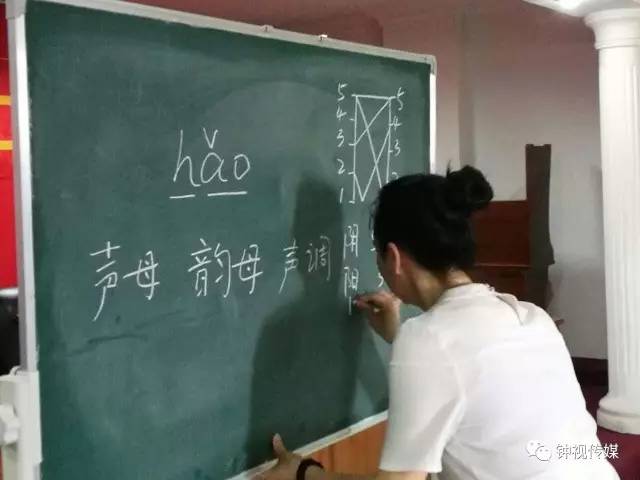 hǎo
声母 韵母 声调
5 5
4 4
3 3
2
1
阴
阳
钟视传媒